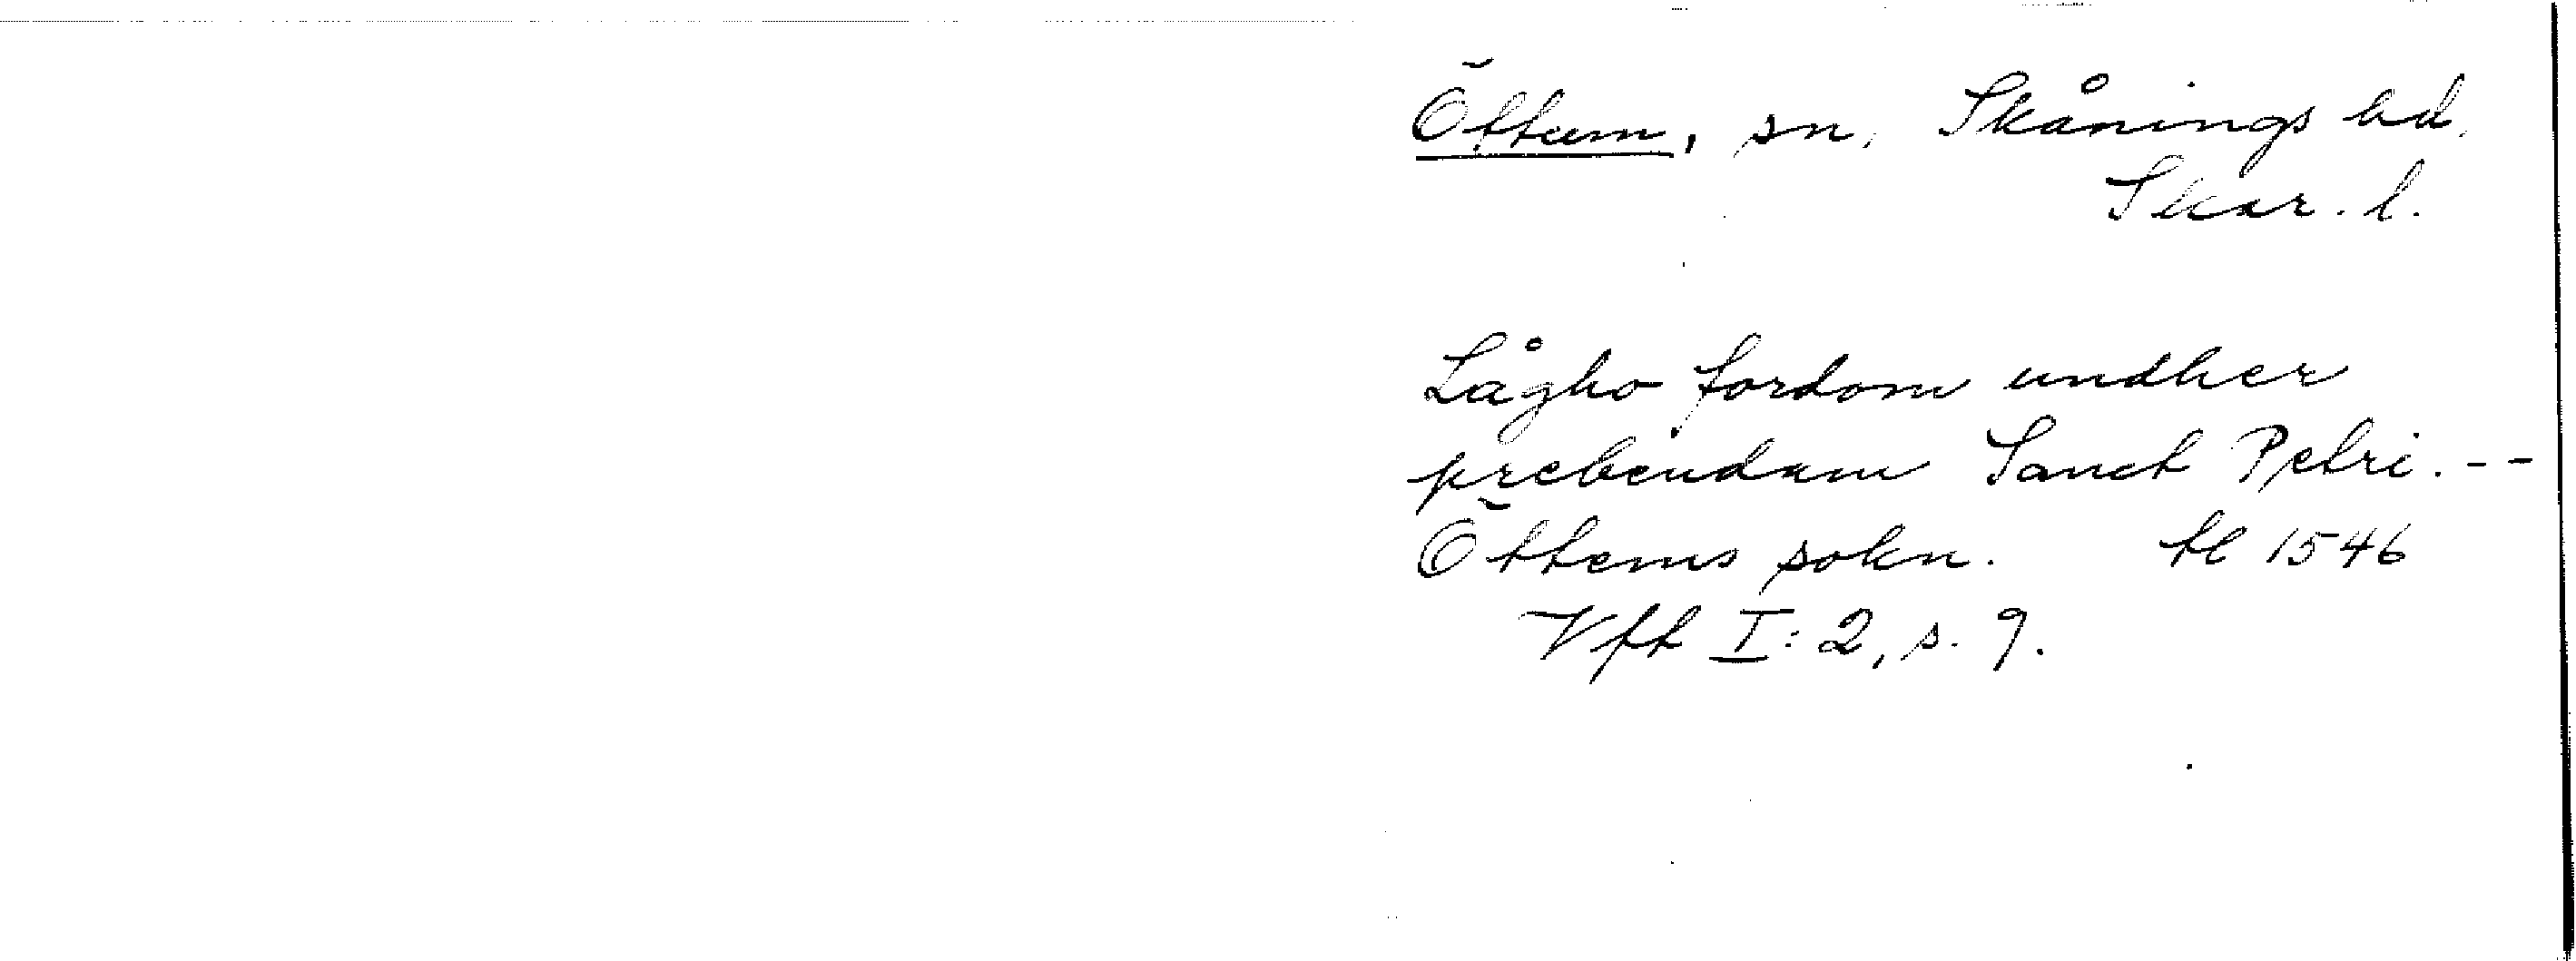 Öttum, sn, Skånings hd,
Skar. l.
Lågho fordom undher
prebendam Sanct Petri. --
Öttems sokn. tl 1546
Vft I: 2, s. 9.